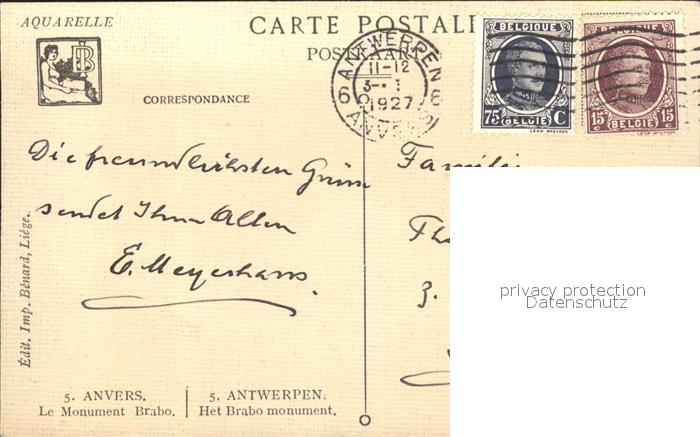 AQUARELLE
CARTE POSTALE
POSTKAART
CORRESPONDANCE
ANTWERPEN 6
11-12
1927
6 ANVERS
BELGIQUE
75 C
BELGIË
BELGIQUE
15 C BELGIË 15 C
Die freundlichsten Grüsse
sendet Ihnen Allen
E. Meyerhans.
Familie
3.
privacy protection
Datenschutz
Édit. Imp. Bénard, Liége.
5. ANVERS.
Le Monument Brabo.
5. ANTWERPEN.
Het Brabo monument.